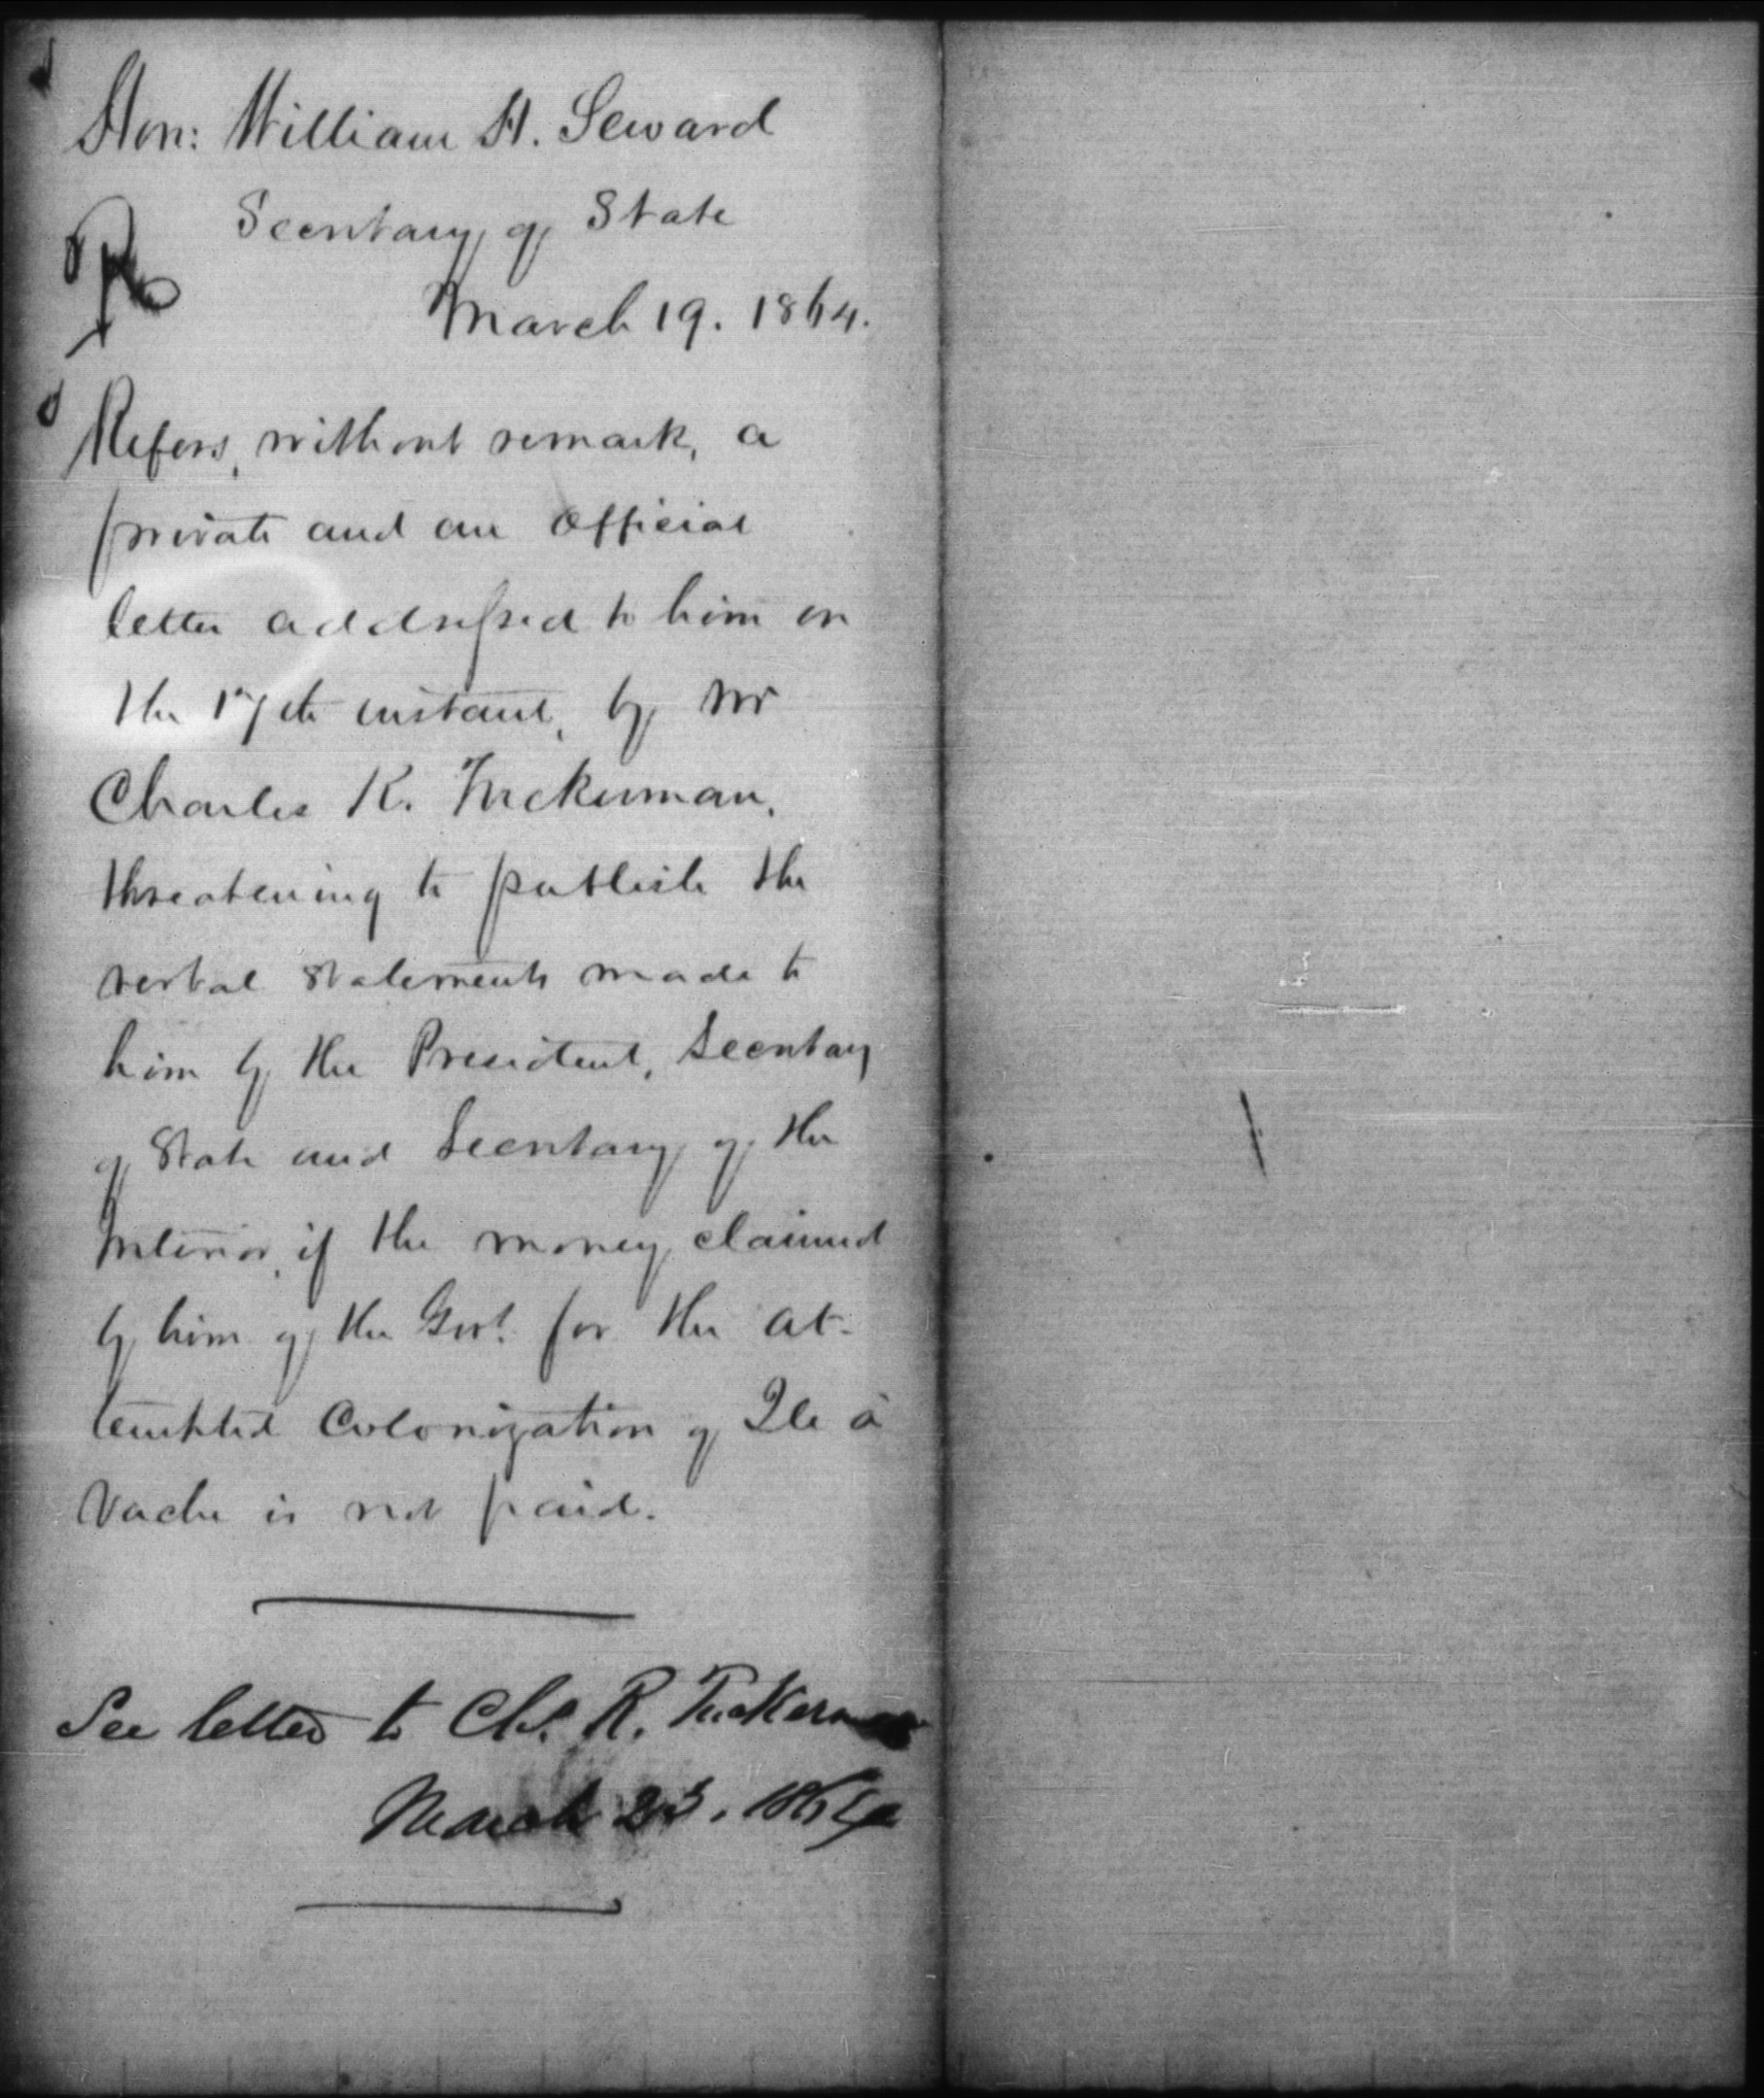 Hon: William H. Seward
Secretary of State
R
March 19. 1864.
Refers, without remark, a
private and an official
letter addressed to him on
the 17th instant, by Mr
Charles K. Tuckerman,
threatening to publish the
verbal statements made to
him by the President, Secretary
of State and Secretary of the
Interior, if the money claimed
by him of the Govt. for the at-
tempted Colonization of Ile à
Vache is not paid.
See letter to Chs. R. Tuckerman
March 23. 1864